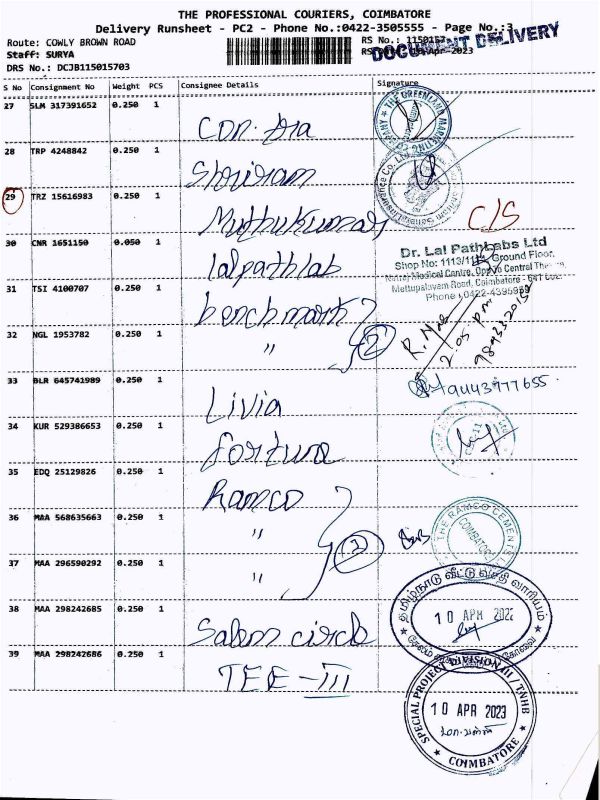 THE PROFESSIONAL COURIERS, COIMBATORE
Delivery Runsheet - PC2 - Phone No.:0422-3505555 - Page No.:3
Route: COWLY BROWN ROAD
Staff: SURYA
DRS No.: DCJB115015703
RS No.:
Apr-2023
DOCUMENT DELIVERY
S No Consignment No Weight PCS Consignee Details Signature
27 SLM 317391652 0.250 1
THE GREENLAND MARKETING COMPANY
28 TRP 4248842 0.250 1 Shriram
29 TRZ 15616983 0.250 1 Muthukumar
C/S
30 CNR 1651150 0.050 1 lalpathlab
Dr. Lal PathLabs Ltd
Ground Floor,
Mettupalayam Road, Coimbatore
31 TSI 4100707 0.250 1 benchmark
32 NGL 1953782 0.250 1 "
2
2.05 pm
33 BLR 645741989 0.250 1 Livia
9443977655
34 KUR 529386653 0.250 1 fortune
35 EDQ 25129826 0.250 1 Ramco
36 MAA 568635663 0.250 1 "
37 MAA 296590292 0.250 1 "
3
THE RAMCO CEMENTS
COIMBATORE
38 MAA 298242685 0.250 1 Salem circle
தமிழ்நாடு வீட்டு வசதி வாரியம்
10 APR 2023
39 MAA 298242686 0.250 1 TEE-III
SPECIAL PROJECT DIVISION III / TNHB
10 APR 2023
COIMBATORE